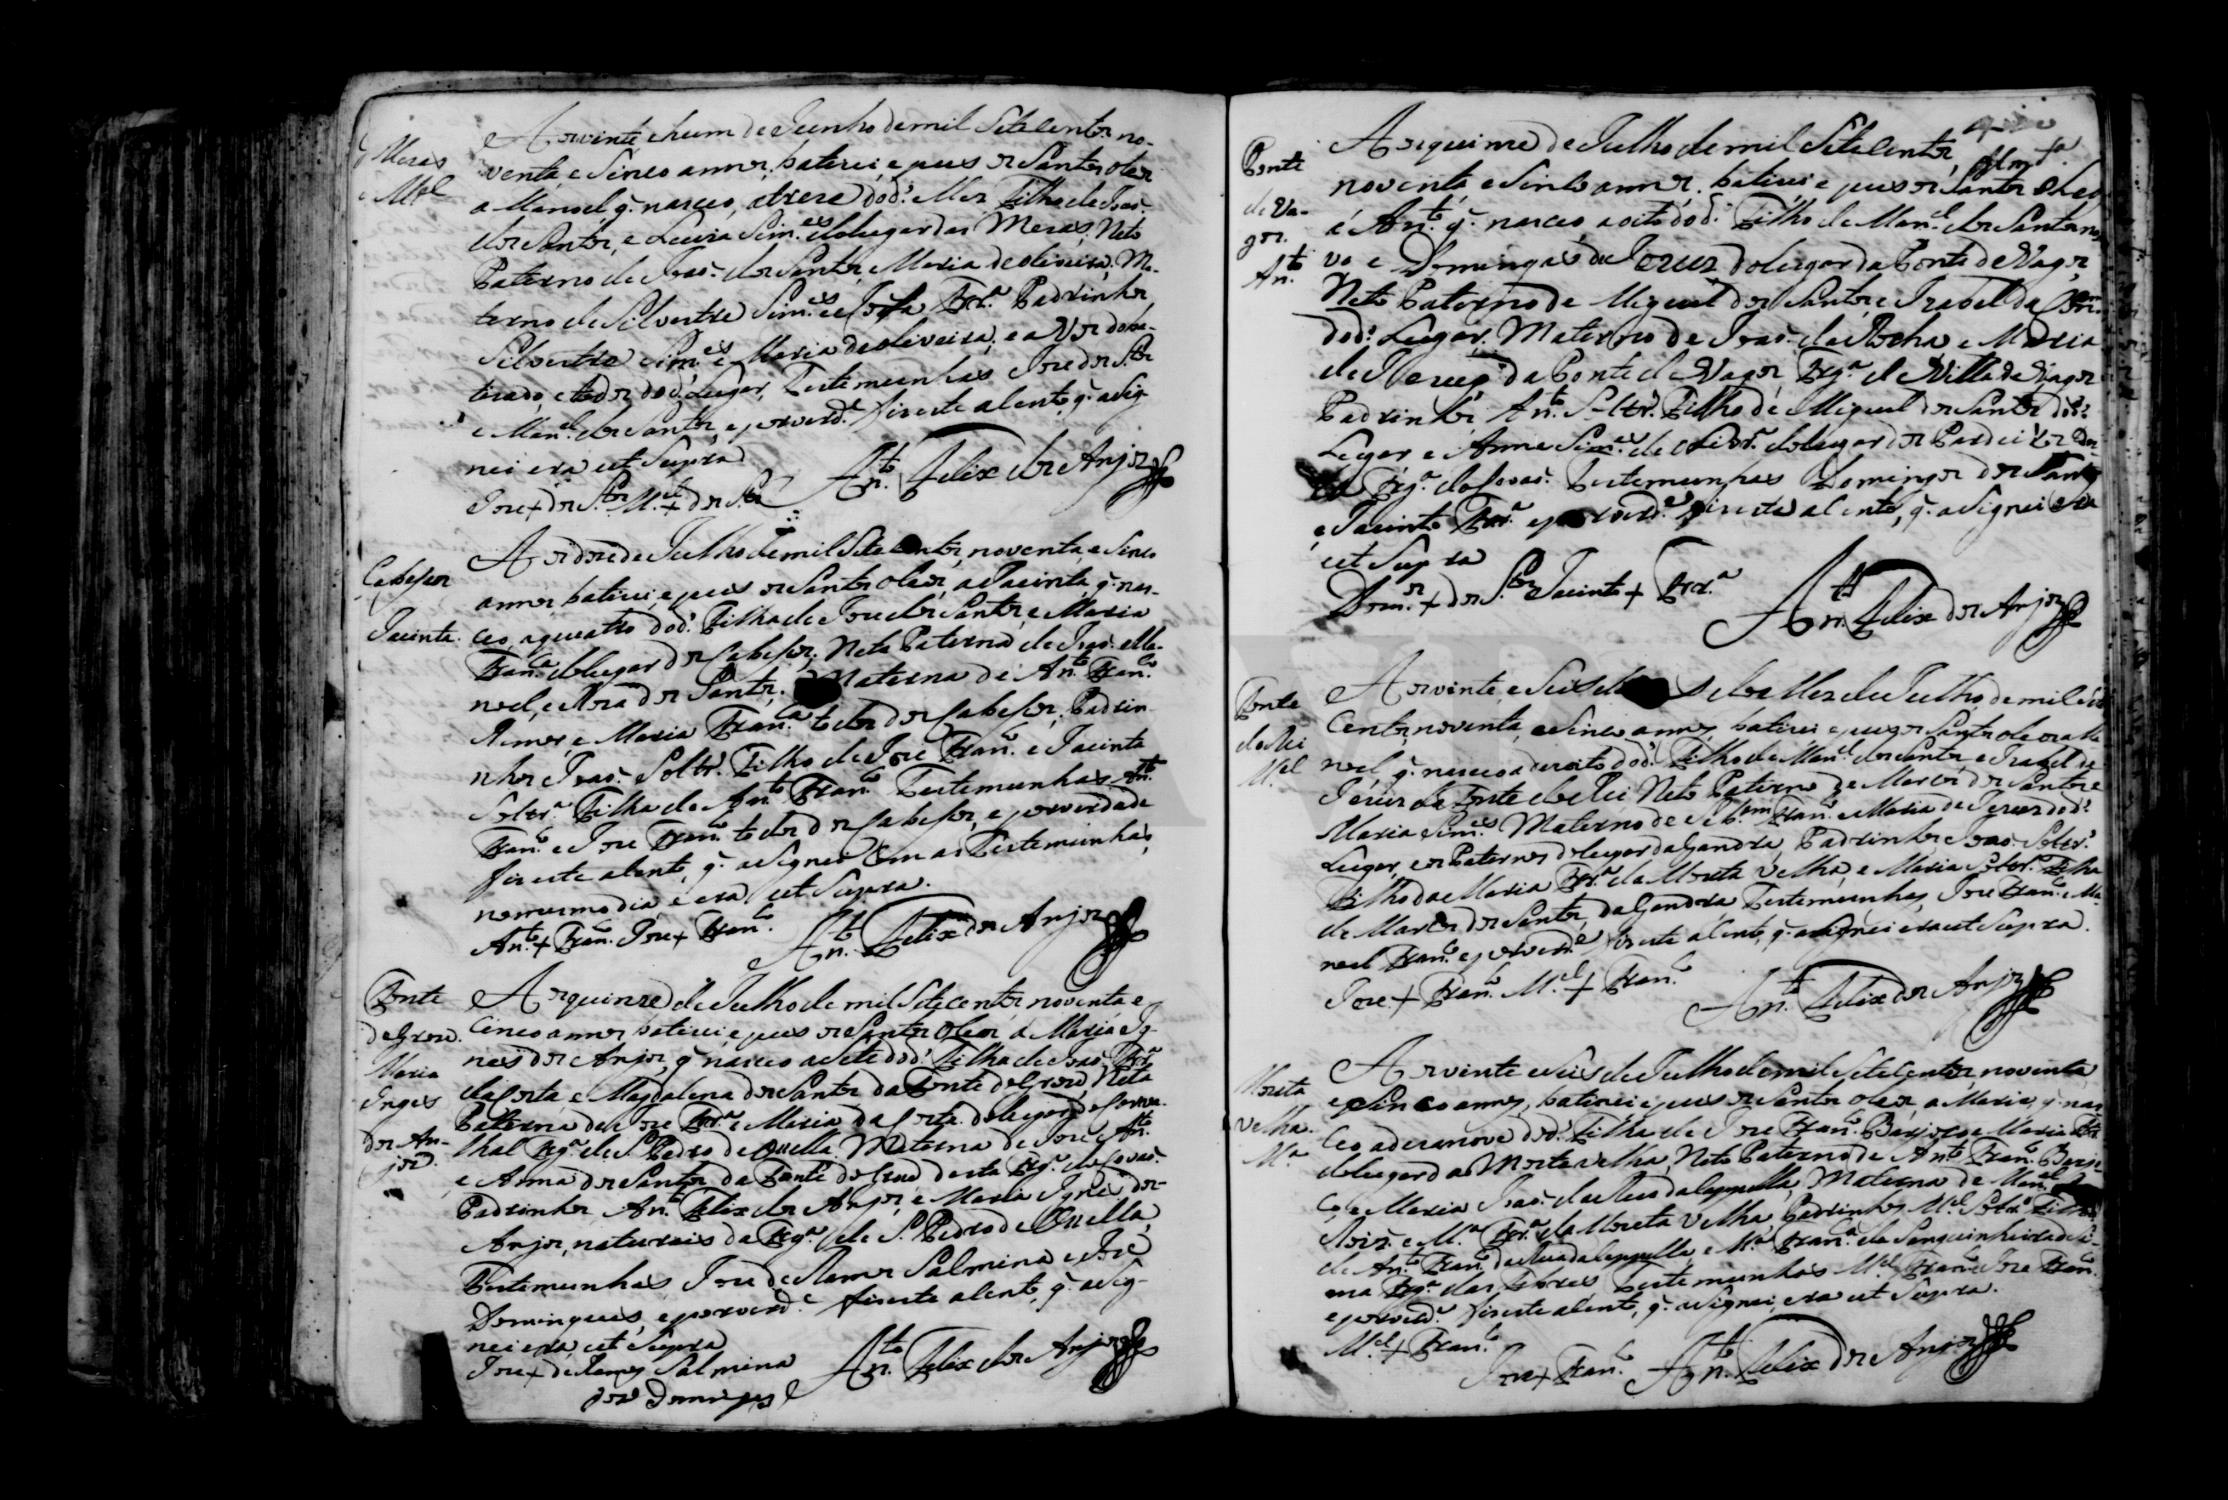 Mesas
M.el
Aos vinte e hum de Junho de mil Setecentos no-
venta, e Sinco annos, baticei, e pus os Santos oleos
a Manoel q. nasceo, atreze do d.º Mes Filho de Joaõ
dos Santos, e Luiza Sim.es do lugar das Mesas, Neto
Paterno de Joaõ dos Santos, e Maria de oliveira, Ma-
terno de Silvestre Sim.es e Josefa Frr.ª Padrinhos
Silvestre Sim.es e Maria de oliveira, e a Vos do ba-
tizado, e todos do d.º Lugar, Testemunhas Jose dos S.tos
e Man.el dos Santos, e por verd.e fiz este a Cento, q. asig-
nei era ut Supra
Ant.º Felix dos Anjos
Jose + dos S.tos M.el + dos S.tos
Cabeços
Jacinta
Aos doze de Julho de mil Setecentos, noventa, e Sinco
annos, baticei, e pus os Santos oleos, a Jacinta, q. nas-
ceo, a quatro do d.º Filha de Jose dos Santos, e Maria
Fran.ca do lugar dos Cabeços, Neta Paterna de Joaõ Ma-
noel, e Roza dos Santos, Materna de An.to Fran.co
Ramos, e Maria Fran.ca todos dos Cabeços, Padrin-
hos Joaõ Soltr.º Filho de Jose Fran.co e Jacinta
Soltr.ª Filha de An.to Fran.co Testemunhas An.to
Fran.co e Jose Fran.co todos dos Cabeços, e por verdade
fiz este a Cento, q. asignei Com as Testemunhas
no mesmo dia, e era ut Supra.
An.to + Fran.co Jose + Fran.co
Ant.º Felix dos Anjos
Fonte
de Grou.
Maria
Ingnes
dos An-
jos.
Aos quinze de Julho de mil Setecentos, noventa e
Cinco annos, baticei, e pus os Santos oleos, a Maria Ig-
nes dos Anjos, q. nasceo a Sete do d.º Filha de Joaõ Frr.ª
da Costa, e Magdalena dos Santos da Fonte do Grou, Neta
Paterna de Jose Frr.ª e Maria da Costa do lugar de
thal Frg.ª de S. Pedro de Ovella. Materna de Jose An.to
e Anna dos Santos da Fonte do Grou desta Frg.ª de Covaõ.
Padrinhos An.to Felix dos Anjos, e Maria Ignes dos
Anjos, naturais da Frg.ª de S. Pedro de Ovella,
Testemunhas, Jose de Ramos Salmina e Jose
Domingues, e por verd.e fiz este a Cento, q. asig-
nei era ut Supra
Jose + de Ramos Salmina
Ant.º Felix dos Anjos
Joze Domingues
Ponte
de Va-
gos.
An.to
Aos quinze de Julho de mil Setecentos,
noventa e Sinco annos, baticei e pus os Santos oleos
á An.to q. nasceo, a oito do d.º Filho de Man.el dos Santos no-
vo e Domingas de Jezus do lugar da Ponte de Vagos,
Neto Paterno de Miguel dos Santos, e Izabel da
do d.º Lugar. Materno de Joaõ da Rocha e Maria
de Jezus da Ponte de Vagos, Frg.ª de Villa de Vagos
Padrinhos, An.to Soltr.º Filho de Miguel dos Santos do d.º
Lugar e Anna Sim.es de Olivr.ª do lugar dos Pardeiros
Frg.ª de Covaõ. Testemunhas Domingos dos Santos
e Jacinto Frr.ª e por verd.e fiz este a Cento, q. asignei era
ut Supra
Dom.os + dos S.tos Jacinto + Frr.ª
Ant.º Felix dos Anjos
Fonte
do Rei
M.el
Aos vinte, e Seis do Mes de Julho, de mil Sete
Centos, noventa, e Sinco annos, baticei e pus os Santos oleos a Ma-
noel, q. nasceo a dezoito do d.º Filho de Man.el dos Santos e Izabel de
Jezus da Fonte do Rei Neto Paterno de Marcos dos Santos e
Maria Sim.es Materno de Seb.am Fran.co e Maria de Jezus do d.º
Lugar, e os Paternos do lugar da Gandra, Padrinhos Joaõ Soltr.º
Filho da Maria Frr.ª da Moita Velha, e Maria Soltr.ª Filha
de Marcos dos Santos, da Gandra Testemunhas, Jose Fran.co e Ma-
noel Fran.co e por verd.e fiz este a Cento, q. asignei era ut Supra.
Jose + Fran.co M.el + Fran.co
Ant.º Felix dos Anjos
Moita
Velha.
M.ª
Aos vinte e Seis de Julho de mil Setecentos, noventa
e Sinco annos, baticei e pus os Santos oleos, a Maria, q. nas-
ceo a dezanove do d.º Filha de Jose Fran.co e Maria Frr.ª
do lugar da Moita velha, Neta Paterna de An.to Fran.co
e Maria Joaõ da Rua da Cappella, Materna de Man.el
e M.ª Frr.ª da Moita Velha, Padrinhos M.el Soltr.º Filho
de An.to Fran.co da Rua da Cappella, e M.ª Fran.ca
ma Frg.ª das Febres Testemunhas M.el Fran.co e Jose Fran.co
e por verd.e fiz este a Cento, q. asignei, era ut Supra.
M.el + Fran.co
Jose + Fran.co Ant.º Felix dos Anjos